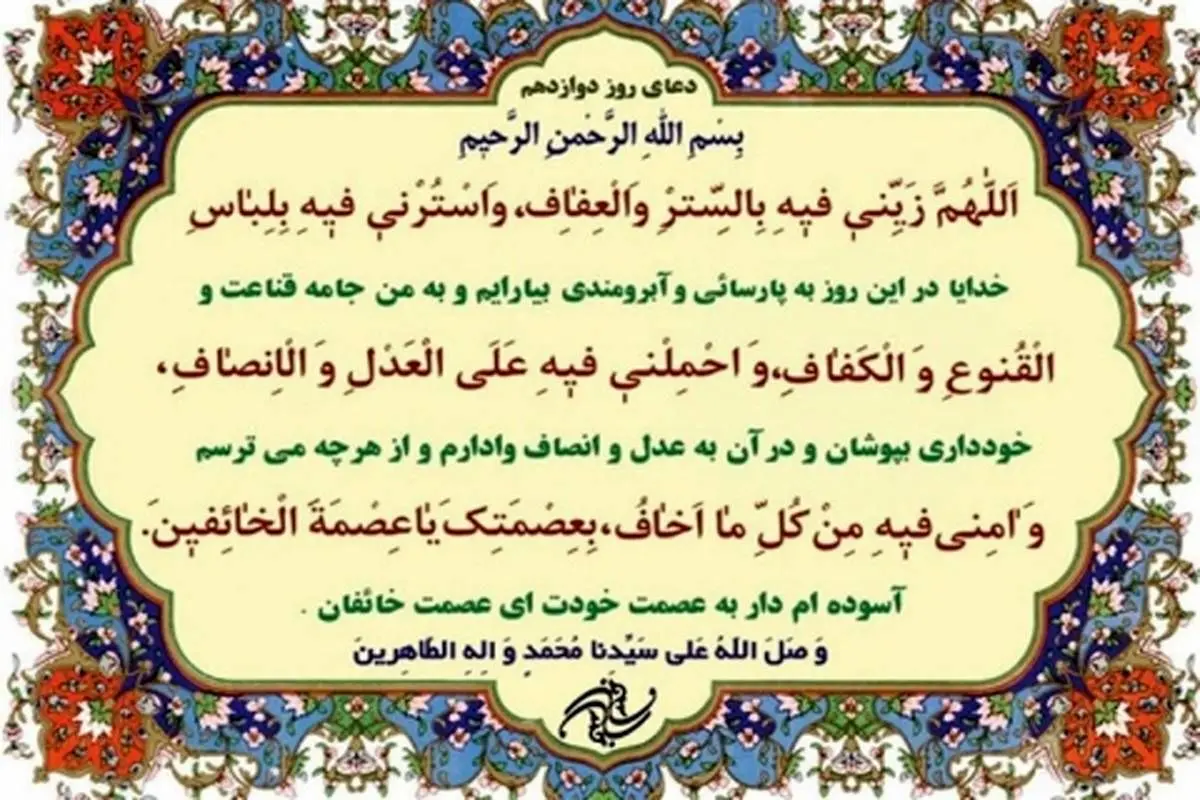 دعای روز دوازدهم
بِسْمِ اللهِ الرَّحْمنِ الرَّحیمِ
اَللّٰهُمَّ زَیِّنّی فیهِ بِالسِّترْ وَالْعِفافِ، وَاسْتُرْنی فیهِ بِلِباسِ
خدایا در این روز به پارسائی و آبرومندی بیارایم و به من جامه قناعت و
الْقُنوعِ وَ الْکَفافِ، وَ احْمِلْنی فیهِ عَلَی الْعَدْلِ وَ الْاِنصافِ،
خودداری بپوشان و در آن به عدل و انصاف وادارم و از هرچه می ترسم
وَ امِنی فیهِ مِنْ کُلِّ ما اَخافُ، بِعِصْمَتِکَ یا عِصْمَةَ الْخائِفینَ.
آسوده ام دار به عصمت خودت ای عصمت خائفان .
وَ صَلَ اللهُ عَلی سَیِّدِنا مُحَمَدٍ وَ الِهِ الطّاهِرینَ